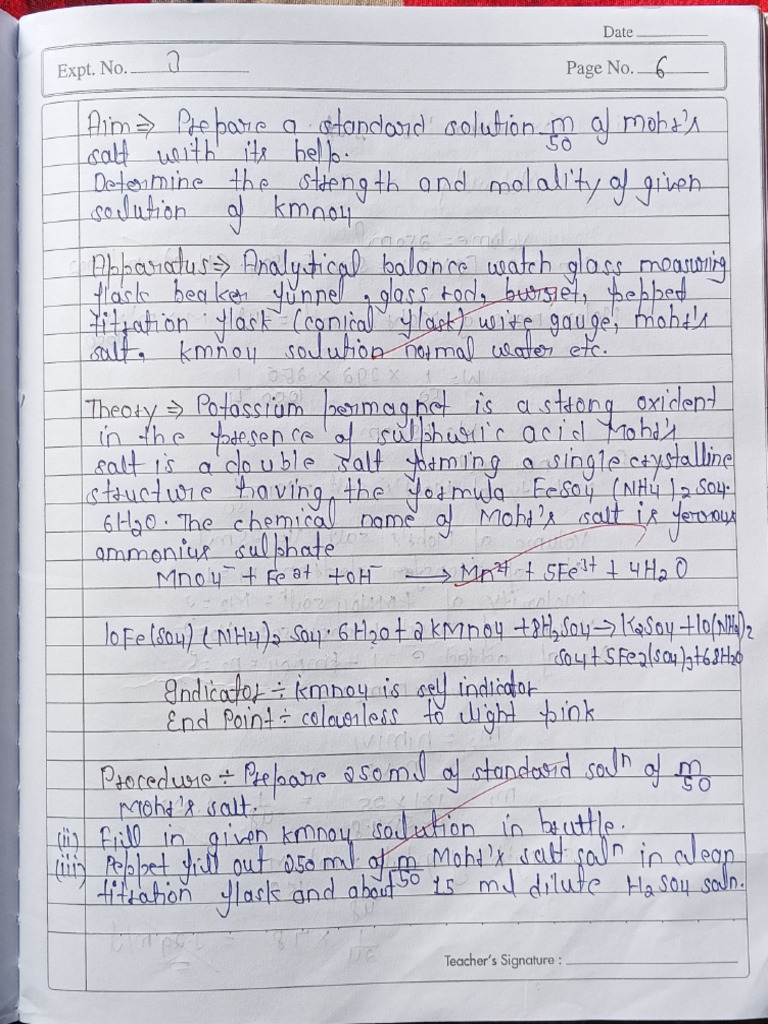 Date
Expt. No. 3
Page No. 6
Aim ⇒ Prepare a standard solution m/50 of Mohr's
salt with its help.
Determine the strength and molality of given
solution of kmno4
Apparatus ⇒ Analytical balance watch glass measuring
flask beaker funnel, glass rod, burset, pepped
titration flask (conical flask) wire gauge, mohr's
salt, kmno4 solution normal water etc.
Theory ⇒ Potassium permagnet is a strong oxident
in the presence of sulphuric acid Mohr's
salt is a double salt forming a single crystalline
structure having the formula FeSO4 (NH4)2SO4.
6H2O. The chemical name of Mohr's salt is ferrous
ammonius sulphate
MnO4⁻ + Fe²⁺ + OH⁻ → Mn²⁺ + 5Fe³⁺ + 4H2O
10Fe(SO4) (NH4)2 SO4·6H2O + 2 KMnO4 + 8H2SO4 → K2SO4 + 10(NH4)2
SO4 + 5Fe2(SO4)3 + 68H2O
Indicator ÷ kmno4 is self indicator
End Point ÷ colourless to light pink
Procedure ÷ Prepare 250 ml of standard solⁿ of m/50
Mohr's salt.
(ii) Fill in given kmno4 solution in bruttle.
(iii) Peppet fill out 250 ml of m/50 Mohr's salt solⁿ in clean
titration flask and about 15 ml dilute H2SO4 solⁿ.
Teacher's Signature :